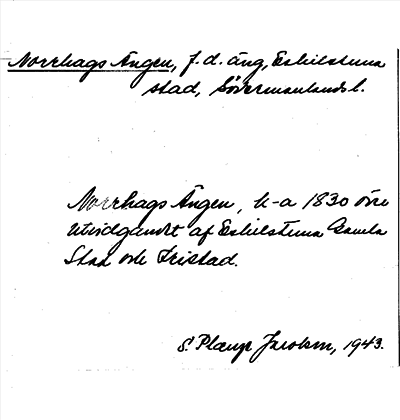 Norrhags Ängen, f.d. äng, Eskilstuna
stad, Södermanlands l.
Norrhags Ängen, k-a 1830 öfre
af Eskilstuna Gamla
Stad och Fristad.
S. Jacobson, 1943.